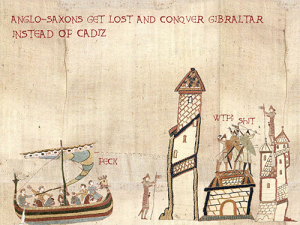 ANGLO-SAXONS GET LOST AND CONQUER GIBRALTAR
INSTEAD OF CADIZ
WTF?
SHIT
FECK